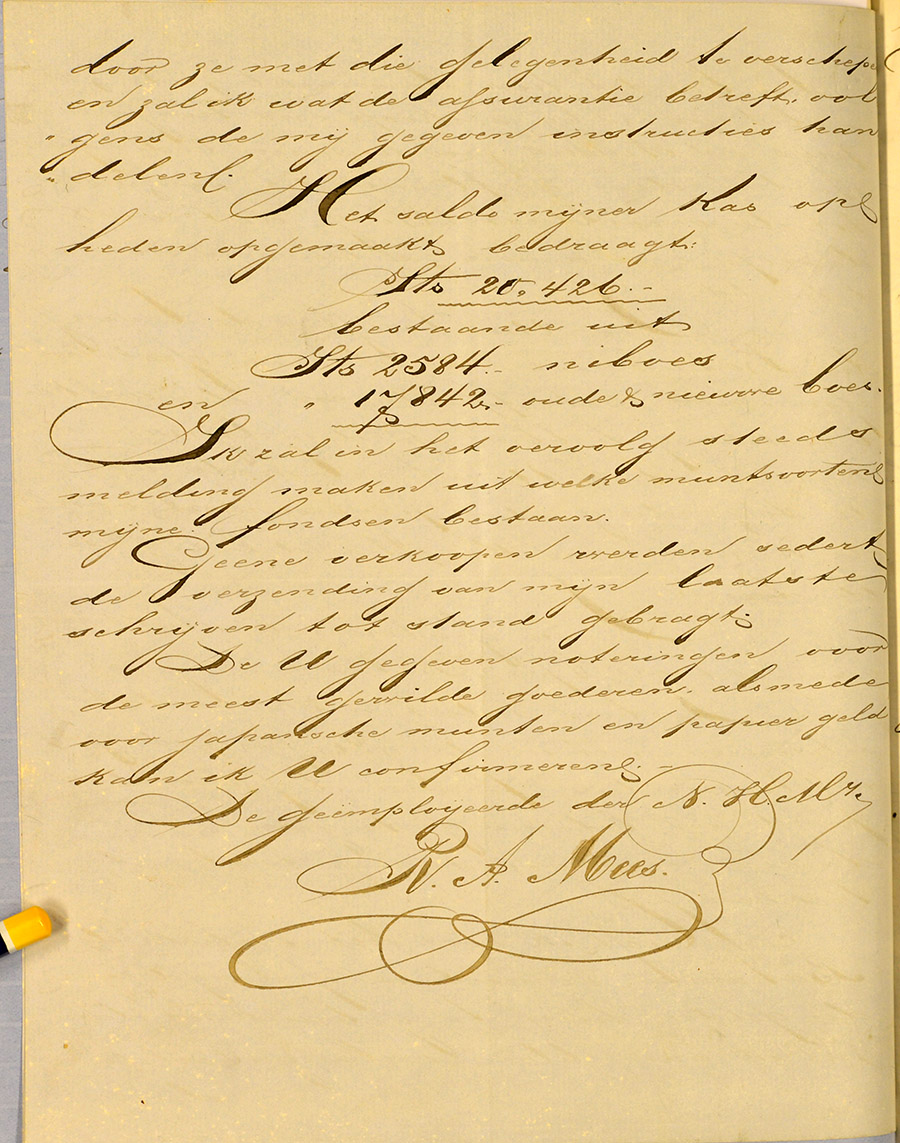 door ze met die gelegenheid te verschepen
en zal ik wat de assurantie betreft, vol
"gens de mij gegeven instructies han
"delen.
Het saldo mijner Kas op
heden opgemaakt bedraagt:
20.426.-
bestaande uit
2584.- niboes
en " 17842.- oude & nieuwe boes.
Ik zal in het vervolg steeds
melding maken uit welke muntsoorten
mijne fondsen bestaan.
Geene verkoopen werden sedert
de verzending van mijn laatste
schrijven tot stand gebragt.
De U gegeven noteringen voor
de meest gewilde goederen, alsmede
voor japansche munten en papier geld
kan ik U confirmeren.
De geëmployeerde der N. H. My.
R. A. Mees.